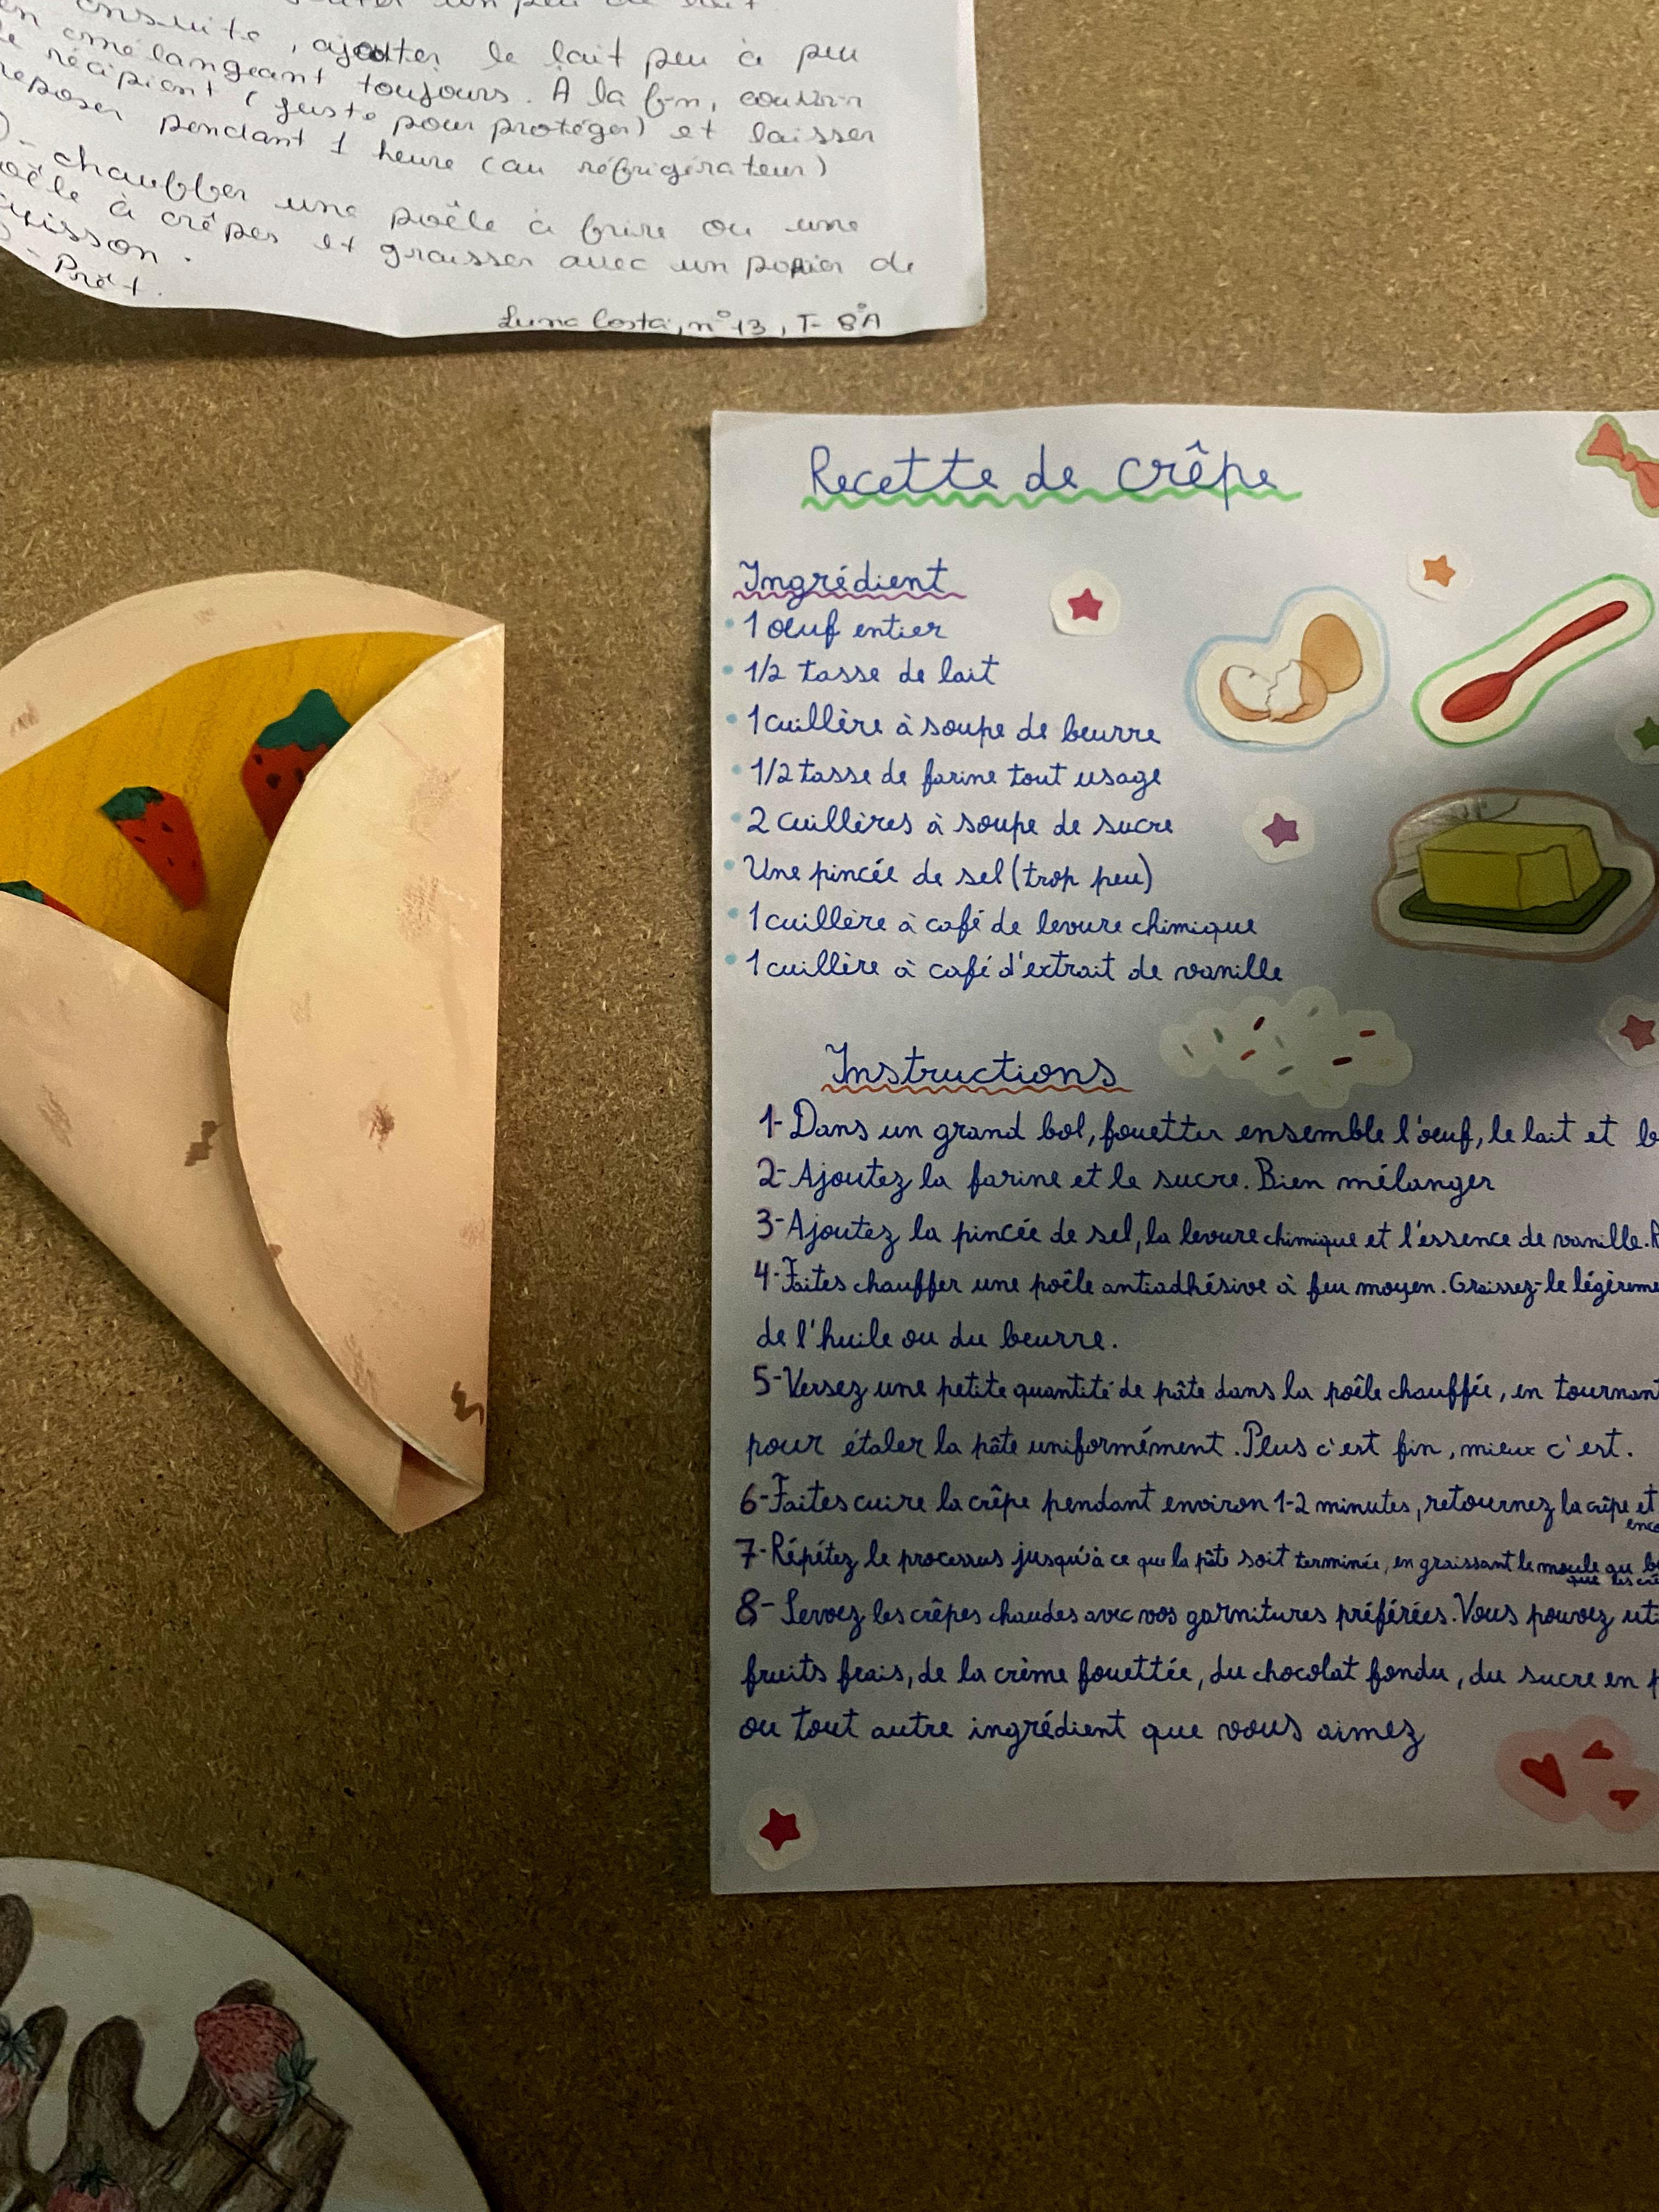 un peu de lait.
ensuite, ajouter le lait peu à peu
en mélangeant toujours. A la fin, couvrir
le récipient (juste pour protéger) et laisser
reposer pendant 1 heure (au réfrigérateur)
- chauffer une poêle à frire ou une
poêle à crêpes et graisser avec un papier de
cuisson.
- Prêt.
Luna Costa, nº 13, T- 8ºA
Recette de crêpe
Ingrédient
1 œuf entier
1/2 tasse de lait
1 cuillère à soupe de beurre
1/2 tasse de farine tout usage
2 cuillères à soupe de sucre
Une pincée de sel (trop peu)
1 cuillère à café de levure chimique
1 cuillère à café d'extrait de vanille
Instructions
1- Dans un grand bol, fouetter ensemble l'œuf, le lait et
2- Ajoutez la farine et le sucre. Bien mélanger
3- Ajoutez la pincée de sel, la levure chimique et l'essence de vanille.
4- Faites chauffer une poêle antiadhésive à feu moyen. Graissez-le
de l'huile ou du beurre.
5- Versez une petite quantité de pâte dans la poêle chauffée, en tournant
pour étaler la pâte uniformément. Plus c'est fin, mieux c'est.
6- Faites cuire la crêpe pendant environ 1-2 minutes, retournez la crêpe et
7- Répétez le processus jusqu'à ce que la pâte soit terminée, en graissant le moule au
que les
8- Servez les crêpes chaudes avec vos garnitures préférées. Vous pouvez
fruits frais, de la crème fouettée, du chocolat fondu, du sucre en
ou tout autre ingrédient que vous aimez